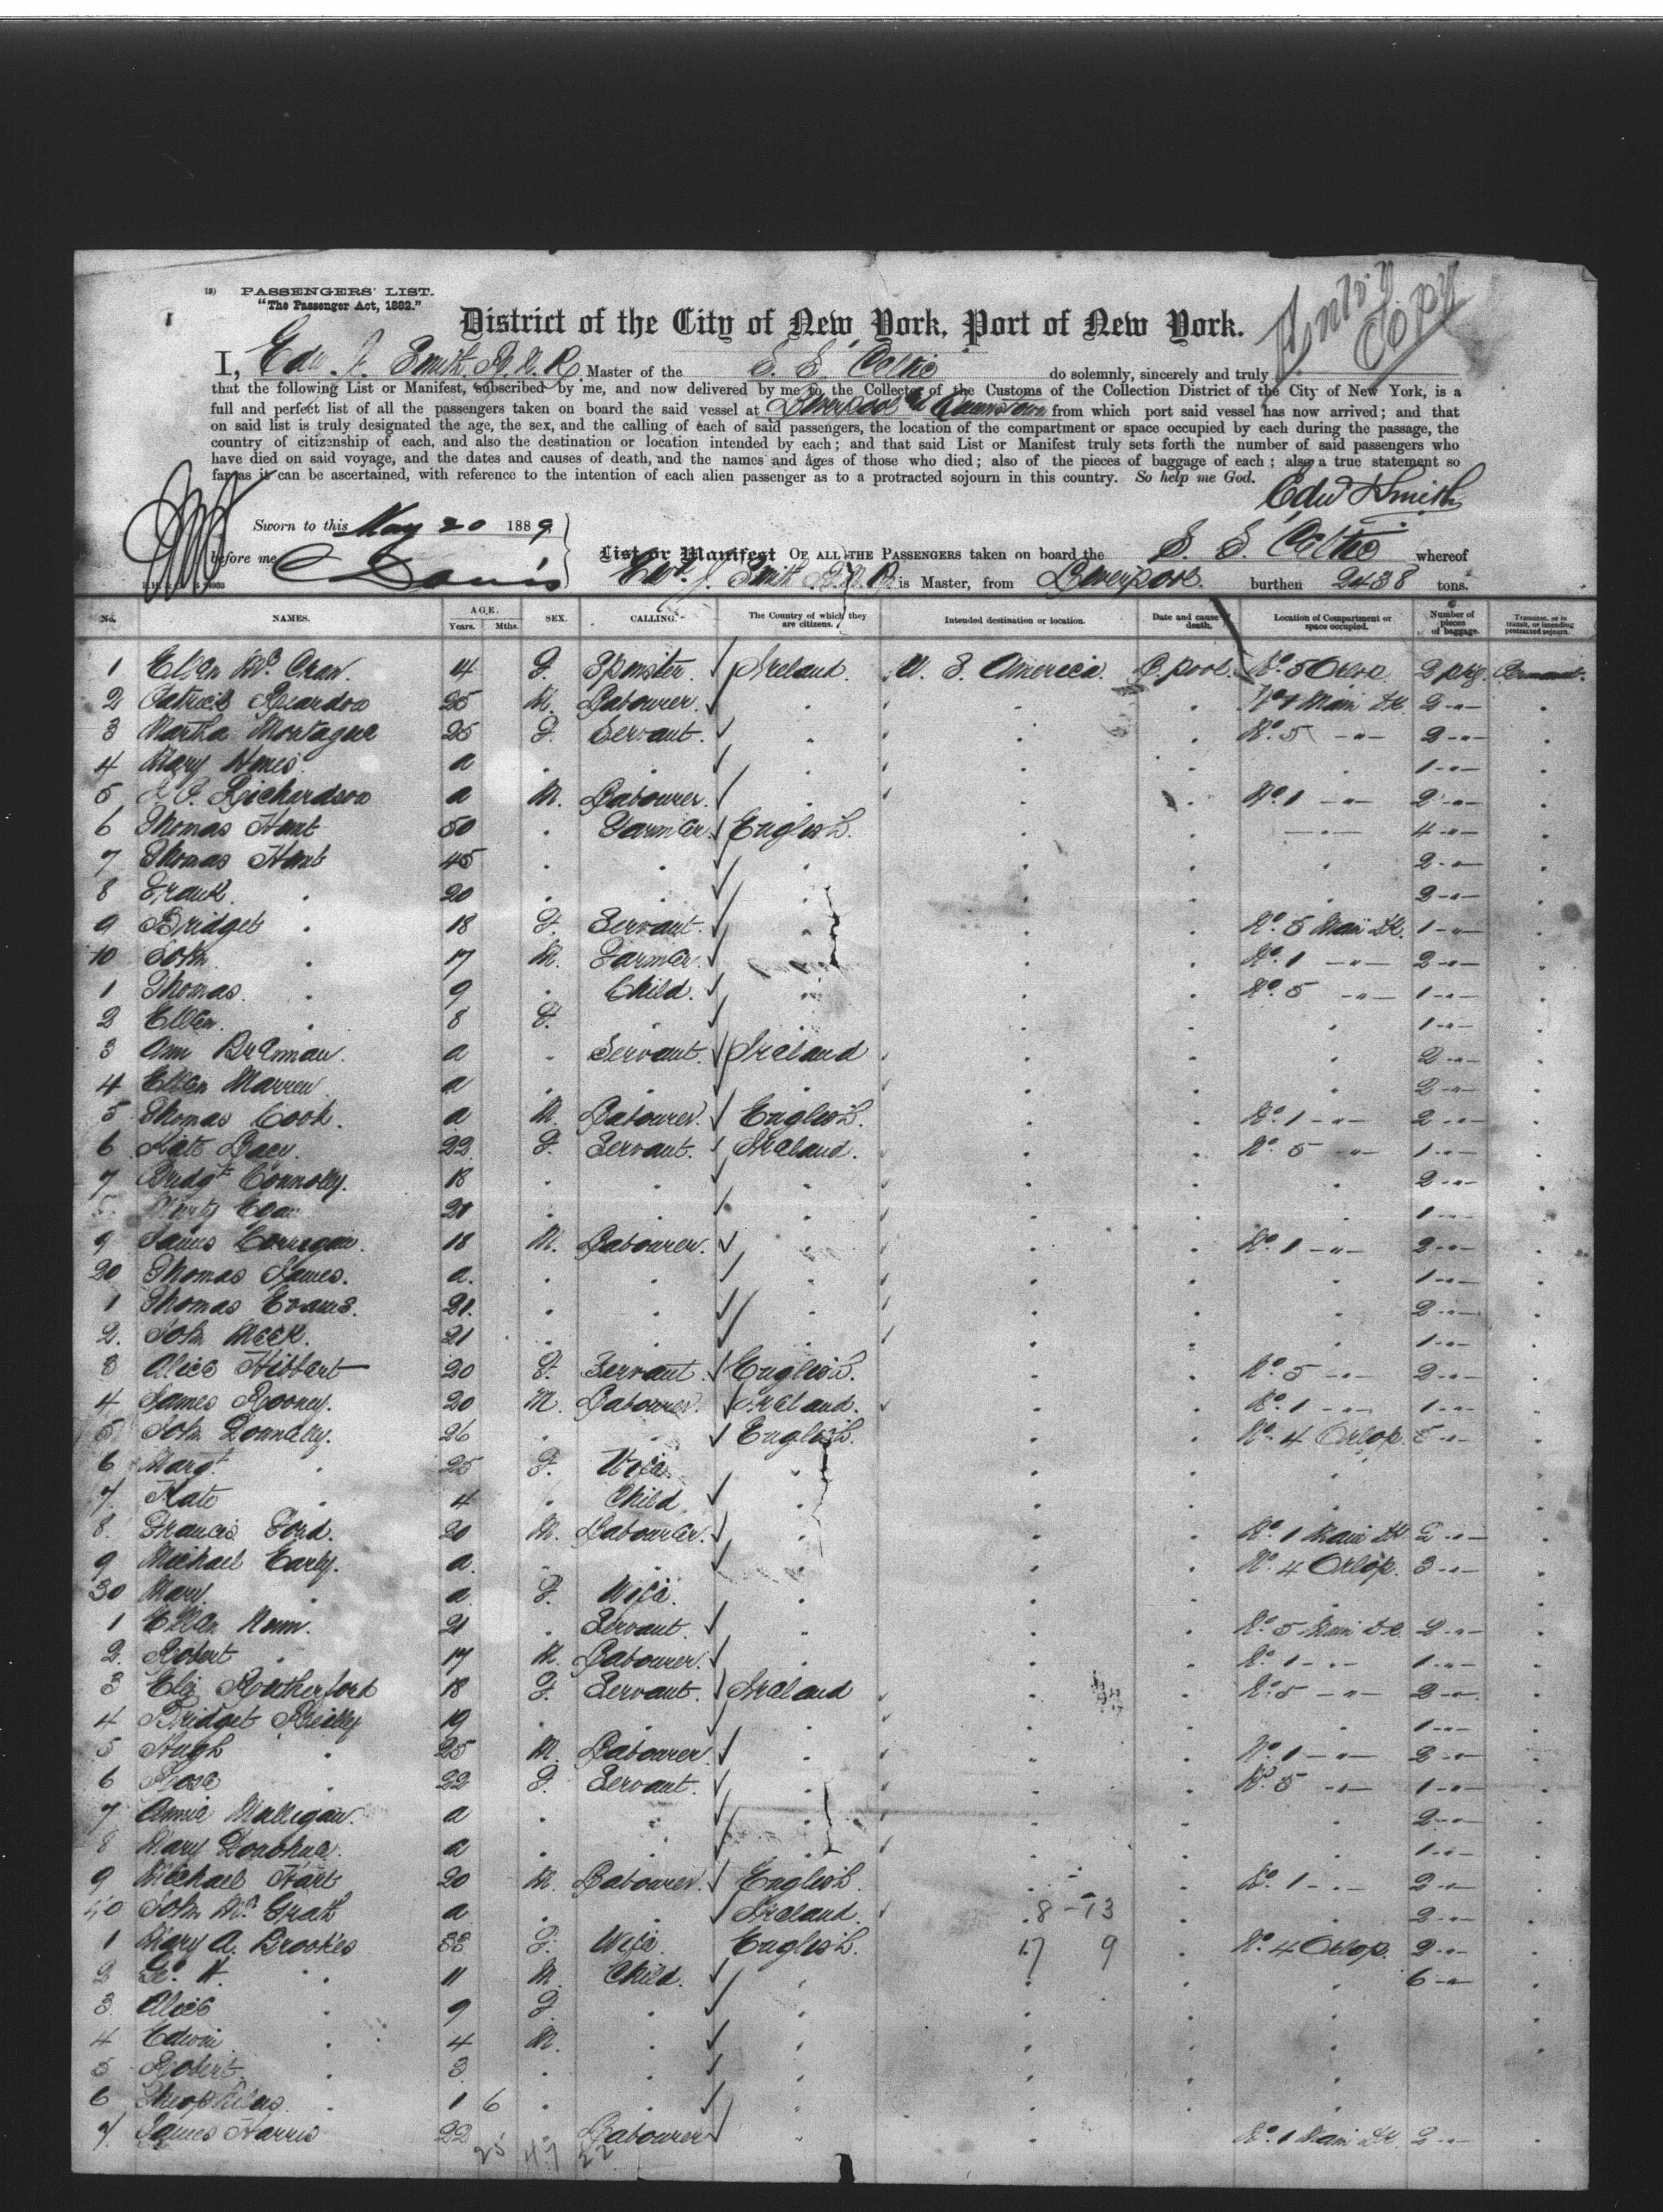 13) PASSENGERS' LIST.
"The Passenger Act, 1882."
District of the City of New York, Port of New York.
Copy
I, Edw. J. Smith, R.N.R. Master of the S. S. Celtic do solemnly, sincerely and truly
that the following List or Manifest, subscribed by me, and now delivered by me to the Collector of the Customs of the Collection District of the City of New York, is a
full and perfect list of all the passengers taken on board the said vessel at Liverpool & Queenstown from which port said vessel has now arrived; and that
on said list is truly designated the age, the sex, and the calling of each of said passengers, the location of the compartment or space occupied by each during the passage, the
country of citizenship of each, and also the destination or location intended by each; and that said List or Manifest truly sets forth the number of said passengers who
have died on said voyage, and the dates and causes of death, and the names and ages of those who died; also of the pieces of baggage of each; also a true statement so
far as it can be ascertained, with reference to the intention of each alien passenger as to a protracted sojourn in this country. So help me God.
Edw J Smith
Sworn to this May 20 1889
before me Davis
List or Manifest OF ALL THE PASSENGERS taken on board the S. S. Celtic whereof
Edw. J. Smith R.N.R. is Master, from Liverpool. burthen 2438 tons.
No. NAMES. AGE. Years. Mths. SEX. CALLING. The Country of which they are citizens. Intended destination or location. Date and cause of death. Location of Compartment or space occupied. Number of pieces of baggage. Transient, or in transit, or intending protracted sojourn.
1 Ellen Mc Cran. 14 F. Spinster. Ireland. U. S. America. L. pool. No. 5 Orlop. 2 pkg.
2 Patrick Reardon 25 M. Labourer. . . . Main Dk. 2 -"- .
3 Martha Montague 25 F. Servant. . . . No. 5 -"- 2 -"- .
4 Mary Hines a . . . . . . 1 -"- .
5 Richardson a M. Labourer. . . . No. 1 -"- 2 -"- .
6 Thomas Hunt 50 . Farmer. English. . . -"- 4 -"- .
7 Thomas Hunt 45 . . . . . . 2 -"- .
8 Frank . 20 . . . . . . 2 -"- .
9 Bridget . 18 F. Servant. . . . No. 5 Main Dk. 1 -"- .
10 John . 17 M. Farmer. . . . No. 1 -"- 2 -"- .
1 Thomas . 9 . Child. . . . No. 5 -"- 1 -"- .
2 Ellen . 8 F. . . . . . 1 -"- .
3 Ann Brennan. a . Servant. Ireland . . . 2 -"- .
4 Ellen Marren a . . . . . . 2 -"- .
5 Thomas Cook. a M. Labourer. English. . . No. 1 -"- 2 -"- .
6 Kate Lacy. 22 F. Servant. Ireland. . . No. 5 -"- 1 -"- .
7 Bridgt. Connolly. 18 . . . . . . 2 -"- .
21 . . . . . . 1 -"- .
9 James Corrigan. 18 M. Labourer. . . . No. 1 -"- 2 -"- .
20 Thomas James. a. . . . . . . 1 -"- .
1 Thomas Evans. 21. . . . . . . 2 -"- .
2. John Meek. 21 . . . . . . 1 -"- .
3 Alice Hibbert 20 F. Servant. English. . . No. 5 -"- 2 -"- .
4 James Rooney. 20 M. Labourer. Ireland. . . No. 1 -"- 1 -"- .
5 John Donnelly. 26 . . English. . . No. 4 Orlop. 5 -"- .
6 Margt. . 25 F. Wife. . . . . .
7 Kate . 4 . Child. . . . . .
8. Francis Ford. 20 M. Labourer. . . . No. 1 Main Dk. 2 -"- .
9 Michael Early. a. . . . . . No. 4 Orlop. 3 -"- .
30 Mary . a F. Wife. . . . . .
1 Ellen Nunn. 21 . Servant. . . . No. 5 Main Dk. 2 -"- .
2. Robert . 17 M. Labourer. . . . No. 1 -"- 1 -"- .
3 Eliz Rutherford 18 F. Servant. Ireland . . No. 5 -"- 2 -"- .
4 Bridget Reilly 19 . . . . . . 1 -"- .
5 Hugh . 25 M. Labourer. . . . No. 1 -"- 2 -"- .
6 Rose . 22 F. Servant. . . . No. 5 -"- 1 -"- .
7 Annie Mulligan. a . . . . . . 2 -"- .
8 Mary Donohue. a . . . . . . 1 -"- .
9 Michael Hart 20 M. Labourer. English. . . No. 1 -"- 2 -"- .
40 John Mc Grath a . . Ireland. 8 - 13 . . 2 -"- .
1 Mary A. Brookes F. Wife. English. 17 9 . No. 4 Orlop. 2 -"- .
2 Geo. H. . 11 M. Child. . . . . 6 -"- .
3. Alice . 9 F. . . . . . .
4 Edwin . 4 M. . . . . . .
5 Robert . 3 . . . . . .
6 Theophilus. . 1 6 . . . . . .
7. James Harris 22 . Labourer . . No. 1 Main Dk. 2 -"- .
25 47 22